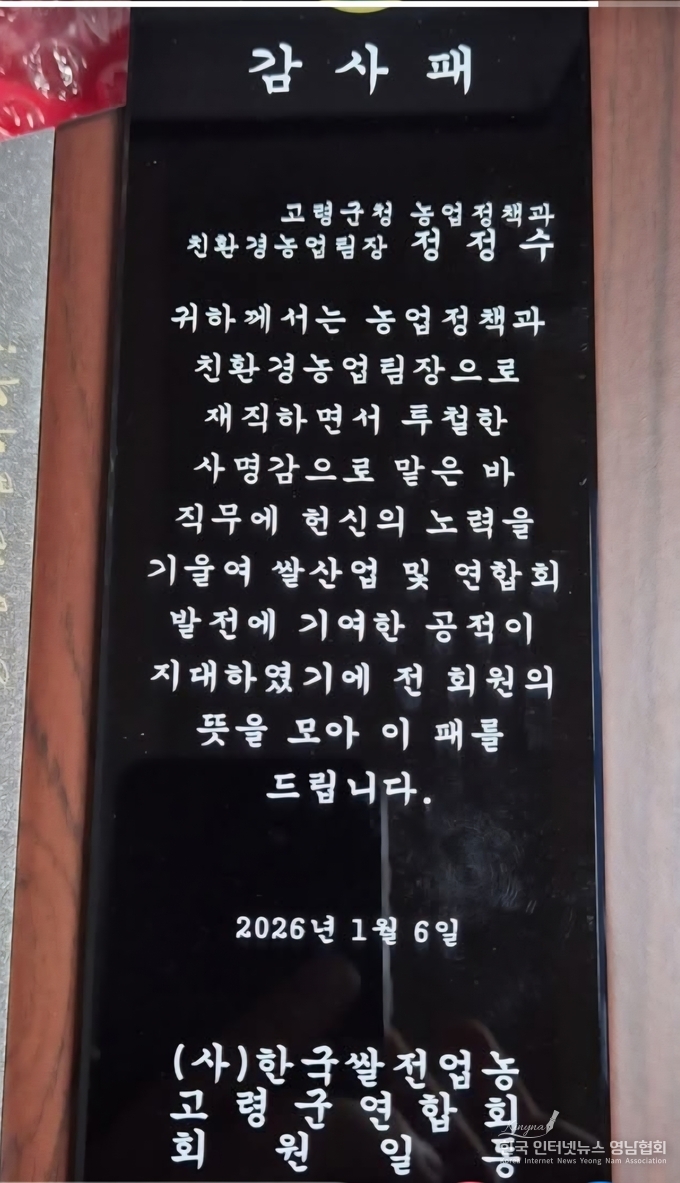 감사패
고령군청 농업정책과
친환경농업팀장 정정수
귀하께서는 농업정책과
친환경농업팀장으로
재직하면서 투철한
사명감으로 맡은 바
직무에 헌신의 노력을
기울여 쌀산업 및 연합회
발전에 기여한 공적이
지대하였기에 전 회원의
뜻을 모아 이 패를
드립니다.
2026년 1월 6일
(사)한국쌀전업농
고령군연합회
회원일동
한국 인터넷뉴스 영남협회
Korea Internet News Yeong Nam Association